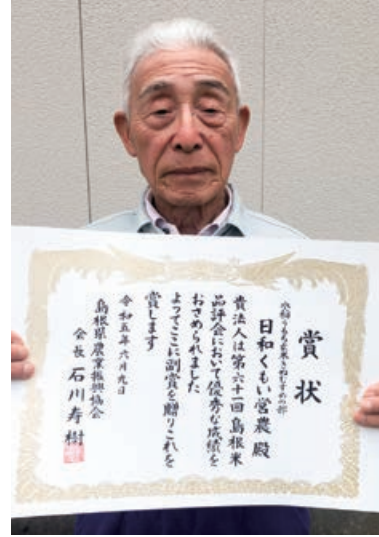 賞状
水稲うるち玄米きぬむすめの部
日和くもい営農 殿
貴法人は第六十一回島根米
品評会において優秀な成績を
おさめられました
よってここに副賞を贈りこれを
賞します
令和五年六月九日
島根県農業振興協会
会長 石川寿樹